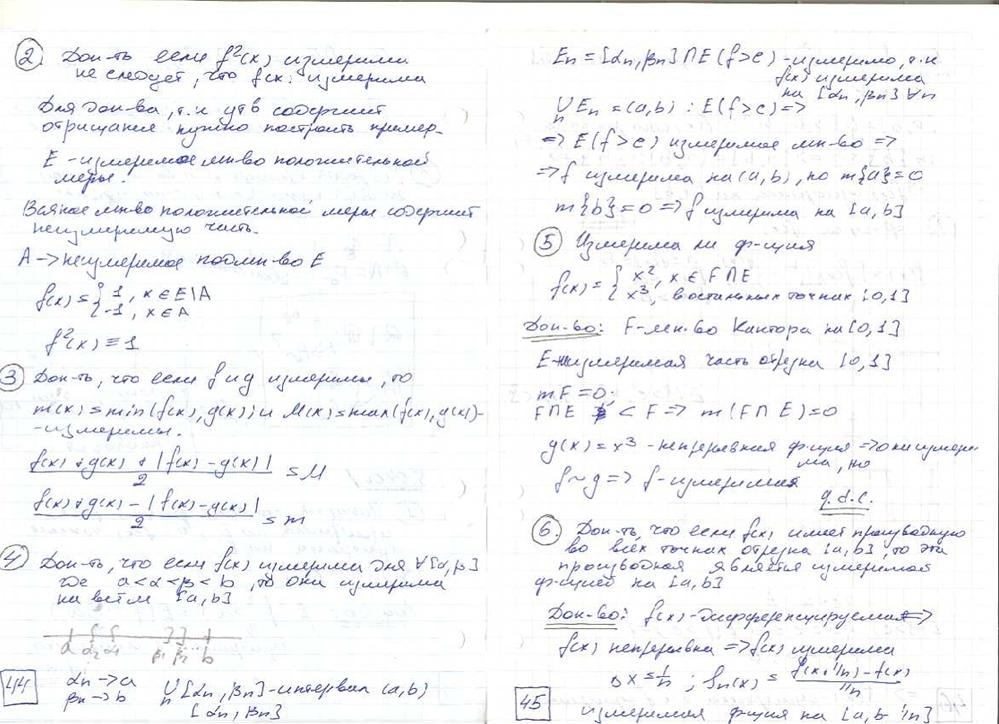 ② Док-ть если f²(x) измерима
не следует, что f(x) измерима
Для док-ва, т.к утв содержит
отрицание нужно построить пример.
E - измеримое мн-во положительной
меры.
Всякое мн-во положительной меры содержит
неизмеримую часть.
A → неизмеримое подмн-во E
f(x) = { 1, x ∈ E\A
{ -1, x ∈ A
f²(x) ≡ 1
③ Док-ть, что если f и g измеримы, то
m(x) = min(f(x), g(x)) и M(x) = max(f(x), g(x)) -
- измеримы.
(f(x) + g(x) + |f(x) - g(x)|)/2 = M
(f(x) + g(x) - |f(x) - g(x)|)/2 = m
④ Док-ть, что если f(x) измерима для ∀[α, β]
где a < α < β < b, то она измерима
на всём [a, b]
a α₂ α₁ β₁ β₂ b
αn → a
βn → b
⋃n [αn, βn] - интервал (a, b)
[αn, βn]
44
En = [αn, βn] ∩ E(f > c) - измеримо, т.к
f(x) измерима
на [αn; βn] ∀n
⋃n En = (a, b) : E(f > c) =>
=> E(f > c) измеримое мн-во =>
=> f измерима на (a, b), но m{a} = 0
m{b} = 0 => f измерима на [a, b]
⑤ Измерима ли ф-ция
f(x) = { x², x ∈ F ∩ E
{ x³, в остальных точках [0, 1]
Док-во: F - мн-во Кантора на [0, 1]
E - неизмеримая часть отрезка [0, 1]
mF = 0;
F ∩ E ⊂ F => m(F ∩ E) = 0
g(x) = x³ - непрерывная ф-ция => она измери-
ма, но
f ~ g => f - измеримая
q.d.e.
⑥. Док-ть, что если f(x) имеет производную
во всех точках отрезка [a, b], то эта
производная является измеримой
ф-цией на [a, b]
Док-во: f(x) - дифференцируемая =>
f(x) непрерывна => f(x) измерима
Δx = 1/n ; fn(x) = (f(x + 1/n) - f(x))/(1/n)
измеримая ф-ция на [a, b - 1/n]
45